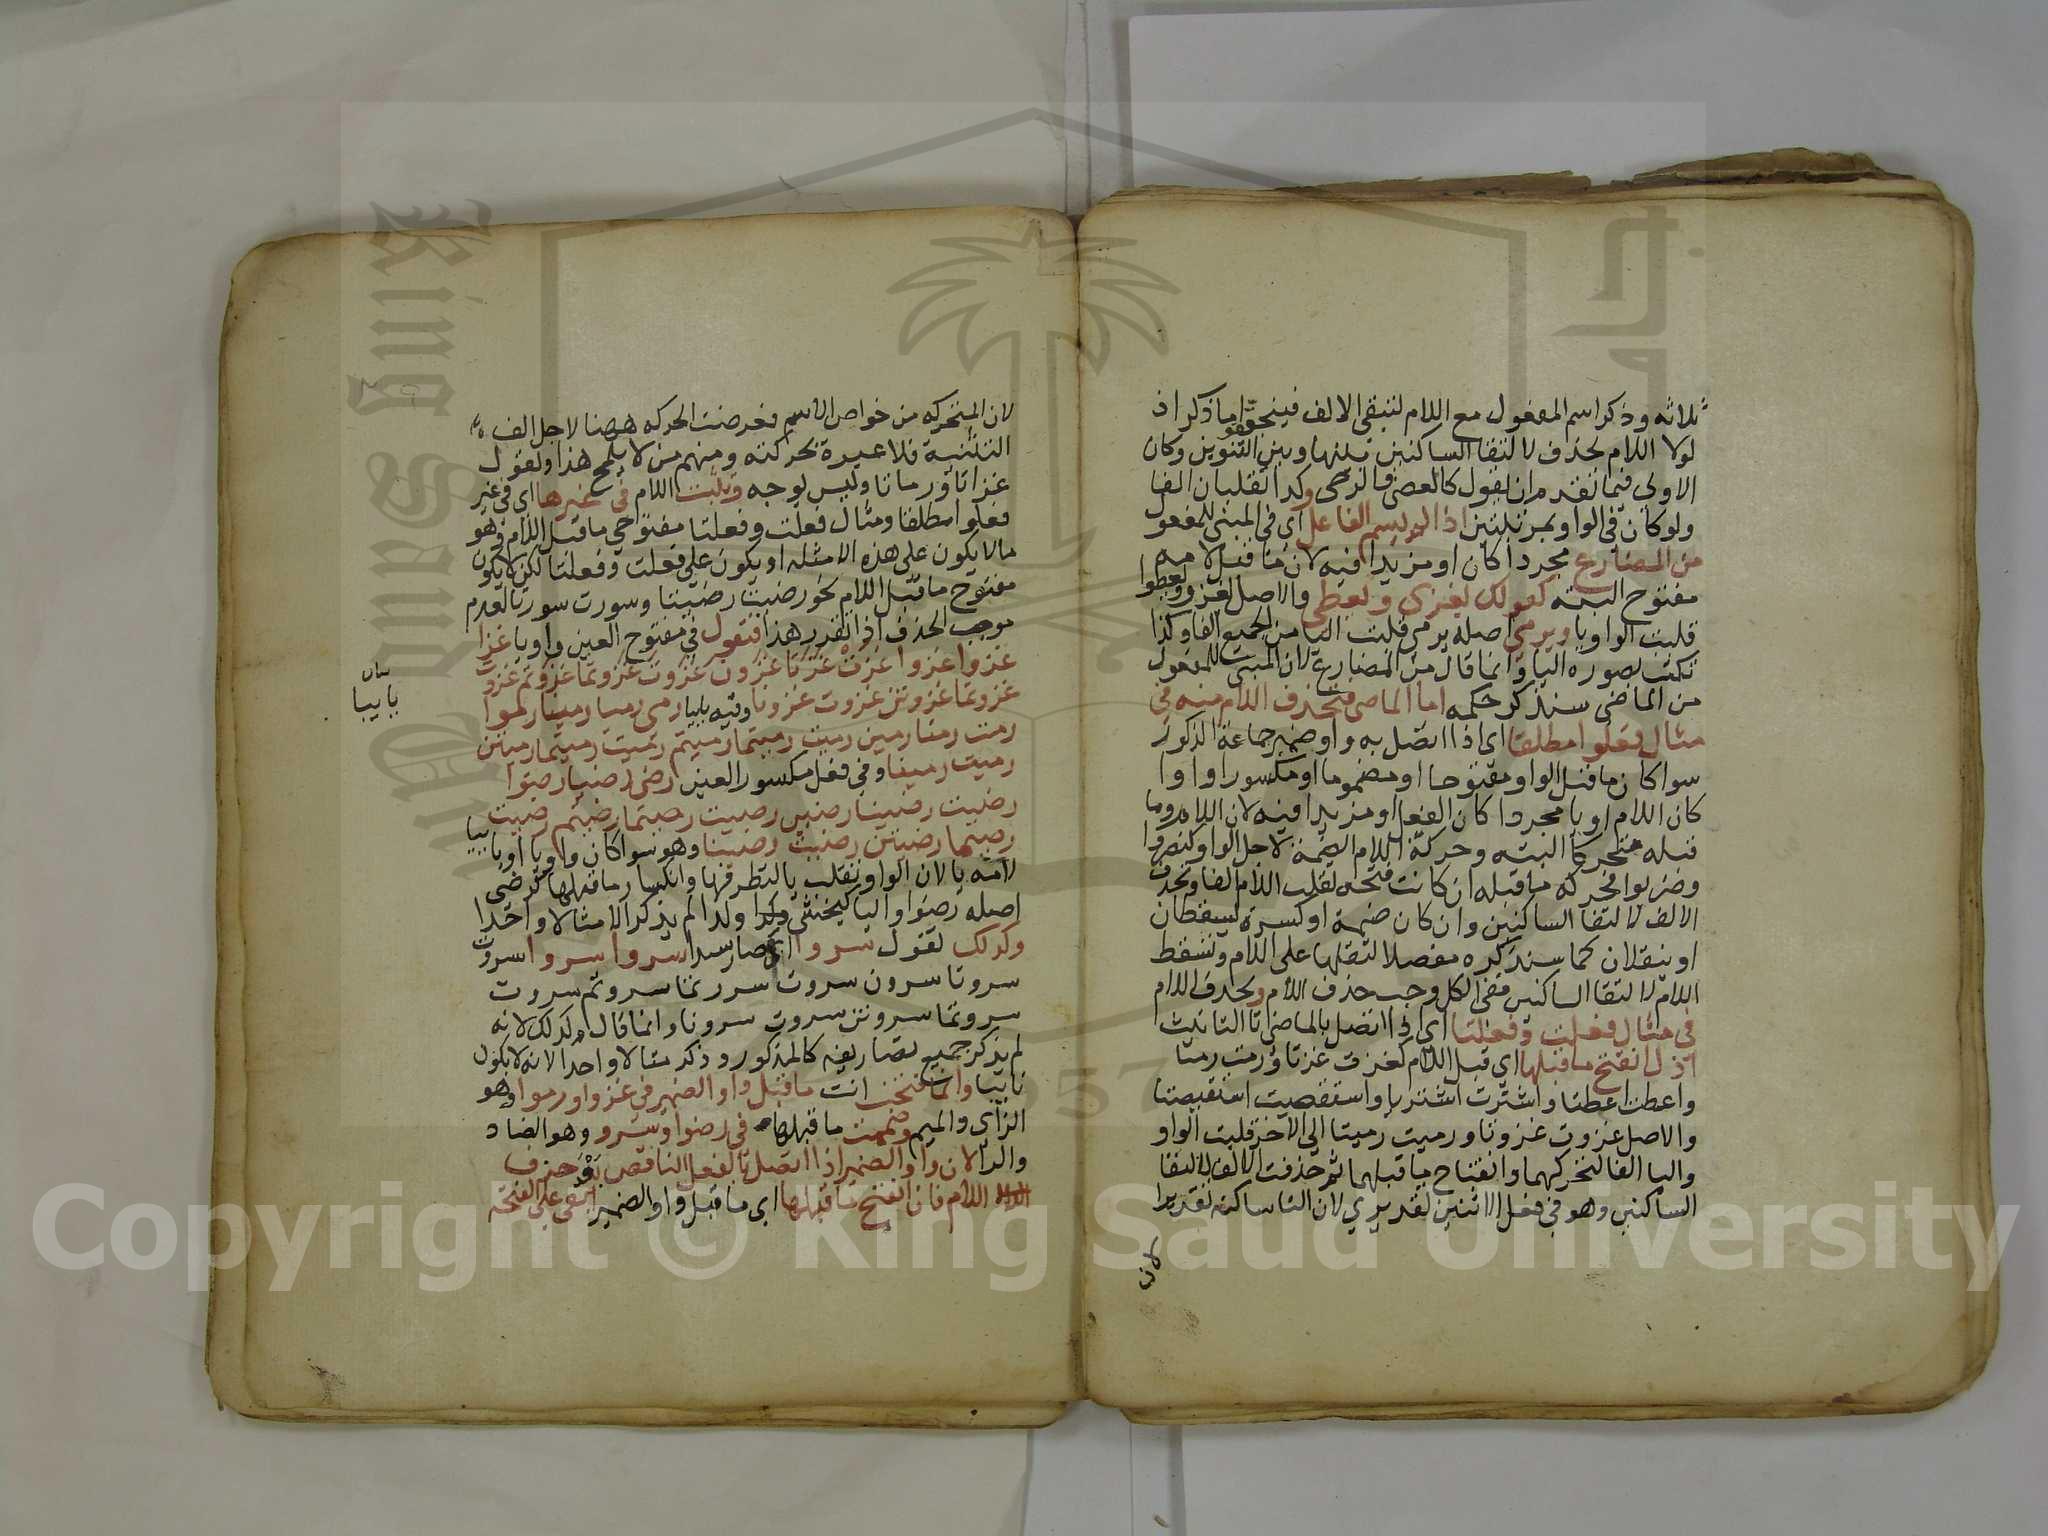 ثلاثه وذكر اسم المفعول مع اللام لتبقى الالف فيتحقق ما ذكر اذ
لولا اللام لحذف لالتقا الساكنين بينها وبين التنوين وكان
الاولى فيما تقدم ان يقول كالعصى والرحى وكذا تقلبان الفا
ولو كان في الواو بمرتبتين اذا لم يسم الفاعل اى في المبنى للمفعول
من المضارع مجردا كان او مزيدا فيه لان ما قبل لامه
مفتوح البته كقولك يغزى ويعطى والاصل يغزو ويعطوا
قلبت الواو يا ويرمى اصله يرمى قلبت اليا من الجميع الفا وكذا
تكتب بصوره اليا وانما قال من المضارع لان المبنى للمفعول
من الماضى سنذكر حكمه اما الماضى فتحذف اللام منه في
مثال فعلوا مطلقا اى اذا اتصل به واو ضمير جماعة الذكور
سوا كان ما قبل الواو مفتوحا او مضموما او مكسورا واوا
كان اللام او يا مجردا كان الفعل او مزيدا فيه لان اللام وما
قبله متحركا البته وحركة اللام الضمة لاجل الواو كنصروا
وضربوا فحركه ما قبله ان كانت فتحه تقلب اللام الفا وتحذف
الالف لالتقا الساكنين وان كان ضمة او كسرة يسقطان
او ينقلان كما سنذكره مفصلا لثقلها على اللام وتسقط
اللام لالتقا الساكنين ففى الكل وجب حذف اللام وتحذف اللام
في مثال فعلت وفعلتا اى اذا اتصل بالماضى تا التانيث
اذا انفتح ما قبلها اى قبل اللام كغزت غزتا ورمت رمتا
واعطت اعطتا واشترت اشتريا واستقصيت استقصتا
والاصل غزوت غزوتا ورميت رميتا الى الاخر قلبت الواو
واليا الفا لتحركهما وانفتاح ما قبلهما ثم حذفت الالف لالتقا
الساكنين وهو في فعل الاثنين تقديري لان التا ساكنه تقديرا
لان
لان المتحركه من خواص الاسم فعرضت الحركه ههنا لاجل الف
التثنية فلا عبرة بحركته ومنهم من لا يلمح هذا ويقول
غزاتا ورماتا وليس بوجه ويثبت اللام في غيرها اى في غير
فعلوا مطلقا ومثال فعلت وفعلتا مفتوحي ما قبل اللام وهو
ما لا يكون على هذه الامثله او يكون على فعلت وفعلتا لكن لا يكون
مفتوح ما قبل اللام نحو رضيت رضيتا وسروت سروتا لعدم
موجب الحذف اذا تقرر هذا فتقول في مفتوح العين واويا غزا
غزوا غزوا غزت غزتا غزون غزوت غزوتما غزوتم غزوت
غزوتما غزوتن غزوت غزونا وفيه يائيا رمى رميا رموا
رمت رمتا رمين رميت رميتما رميتم رميت رميتما رميتن
رميت رمينا وفي فعل مكسور العين رضى رضيا رضوا
رضيت رضيتا رضين رضيت رضيتما رضيتم رضيت
رضيتما رضيتن رضيت رضينا وهو سوا كان واويا او يائيا
لامه يا لان الواو تقلب يا لتطرفها وانكسار ما قبلها كرضى
اصله رضوا واليا كيخشى ولذا لم يذكر الا مثالا واحدا
وكذلك تقول سروا اى صار سيدا سروا سروا سروت
سروتا سرون سروت سروتما سروتم سروت
سروتما سروتن سروت سرونا وانما قال وكذلك لانه
لم يذكر جميع تصاريفه كالمذكور وذكر مثالا واحدا لانه لا يكون
يائيا وانما فتحت انت ما قبل واو الضمير في غزوا ورموا وهو
الزاى والميم وضممت ما قبلها في رضوا وسروا وهو الضاد
والرا لان واو الضمير اذا اتصل بالفعل الناقص بعد حذف
اللام فان انفتح ما قبلها اى ما قبل واو الضمير ابقى على الفتحه
بيان
يائيا
Copyright © King Saud University
King Saud University
1957